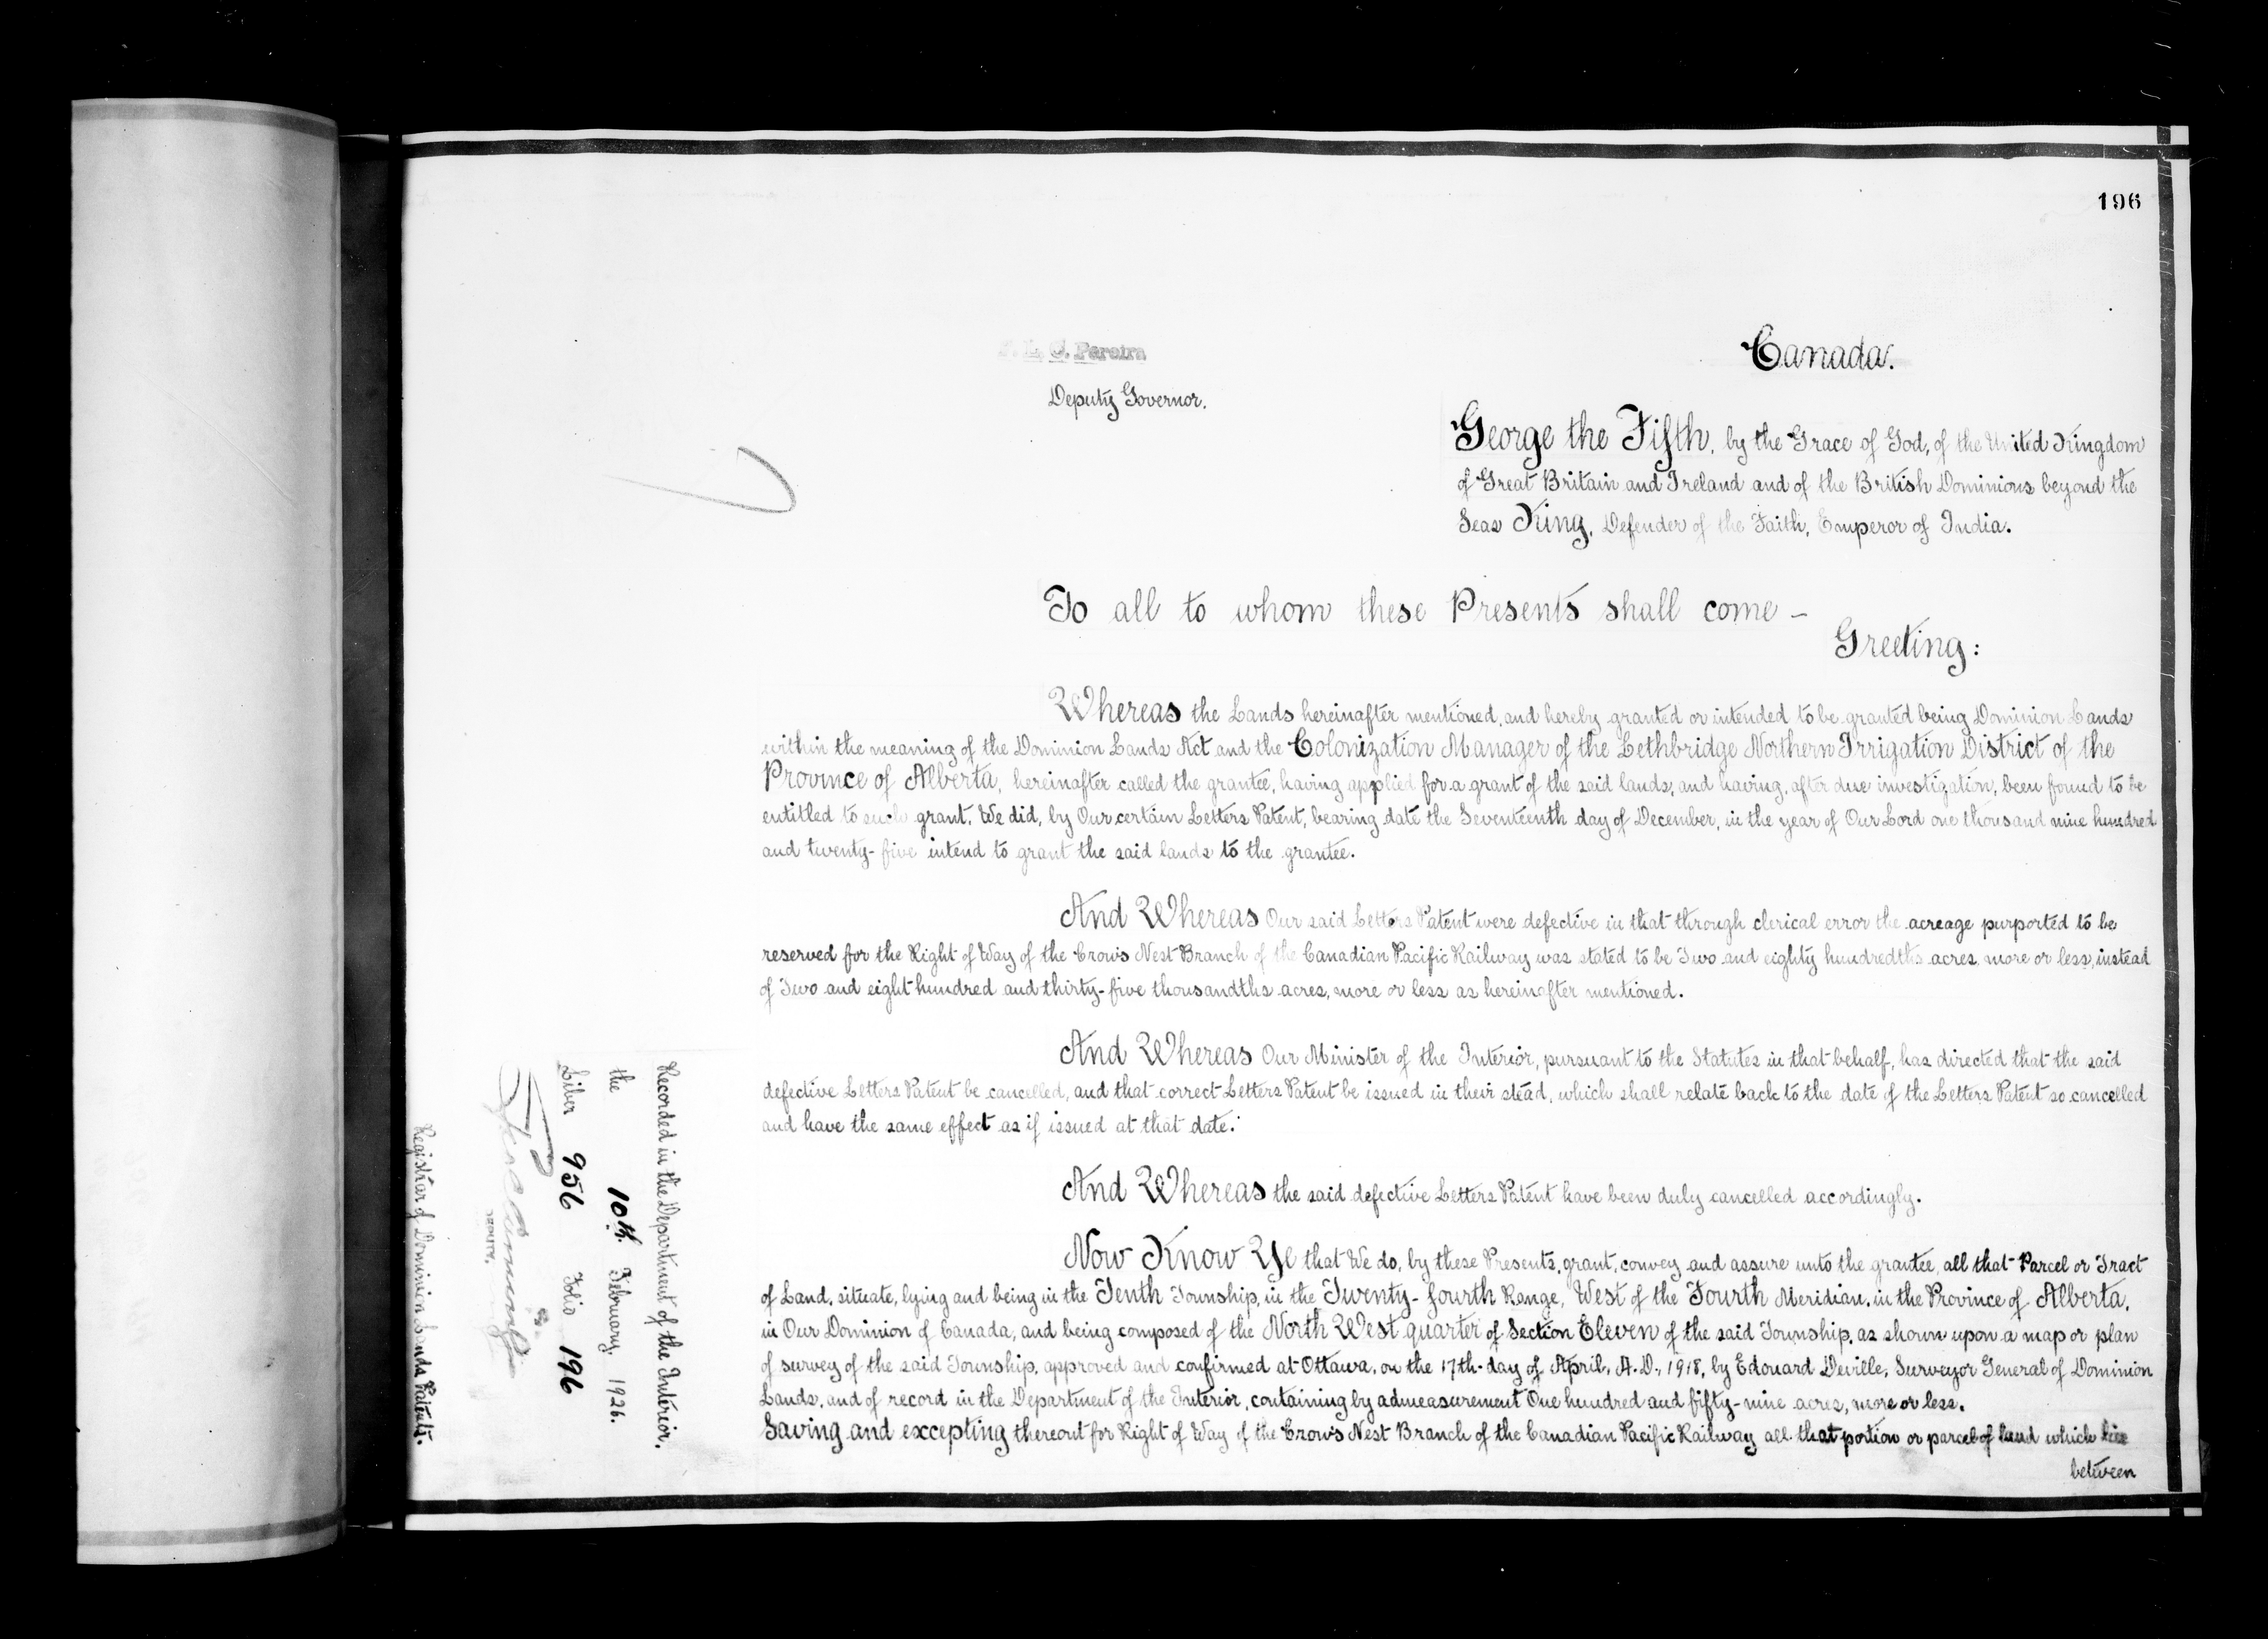 196
L. G. Pereira
Deputy Governor.
Canada.
George the Fifth, by the Grace of God, of the United Kingdom
of Great Britain and Ireland and of the British Dominions beyond the
Seas King, Defender of the Faith, Emperor of India.
To all to whom these Presents shall come –
Greeting:
Whereas the Lands hereinafter mentioned, and hereby granted or intended to be granted being Dominion Lands
within the meaning of the Dominion Lands Act and the Colonization Manager of the Lethbridge Northern Irrigation District of the
Province of Alberta, hereinafter called the grantee, having applied for a grant of the said lands, and having, after due investigation, been found to be
entitled to such grant. We did, by Our certain Letters Patent, bearing date the Seventeenth day of December, in the year of Our Lord one thousand nine hundred
and twenty-five intend to grant the said lands to the grantee.
And Whereas Our said Letters Patent were defective in that through clerical error the acreage purported to be
reserved for the Right of Way of the Crow's Nest Branch of the Canadian Pacific Railway was stated to be Two and eighty hundredths acres, more or less, instead
of Two and eight hundred and thirty-five thousandths acres, more or less as hereinafter mentioned.
And Whereas Our Minister of the Interior, pursuant to the Statutes in that behalf, has directed that the said
defective Letters Patent be cancelled, and that correct Letters Patent be issued in their stead, which shall relate back to the date of the Letters Patent so cancelled
and have the same effect as if issued at that date.
And Whereas the said defective Letters Patent have been duly cancelled accordingly.
Now Know Ye that We do, by these Presents, grant, convey and assure unto the grantee, all that Parcel or Tract
of Land, situate, lying and being in the Tenth Township, in the Twenty-fourth Range, West of the Fourth Meridian, in the Province of Alberta,
in Our Dominion of Canada, and being composed of the North West quarter of Section Eleven of the said Township, as shown upon a map or plan
of survey of the said Township, approved and confirmed at Ottawa, on the 17th day of April, A.D., 1918, by Edouard Deville, Surveyor General of Dominion
Lands, and of record in the Department of the Interior, containing by admeasurement One hundred and fifty-nine acres, more or less.
Saving and excepting thereout for Right of Way of the Crow's Nest Branch of the Canadian Pacific Railway all that portion or parcel of land which lies
between
Recorded in the Department of the Interior,
the 10th. February, 1926.
Liber 956 Folio 196
DEPUTY.
Registrar of Dominion Lands Patents.